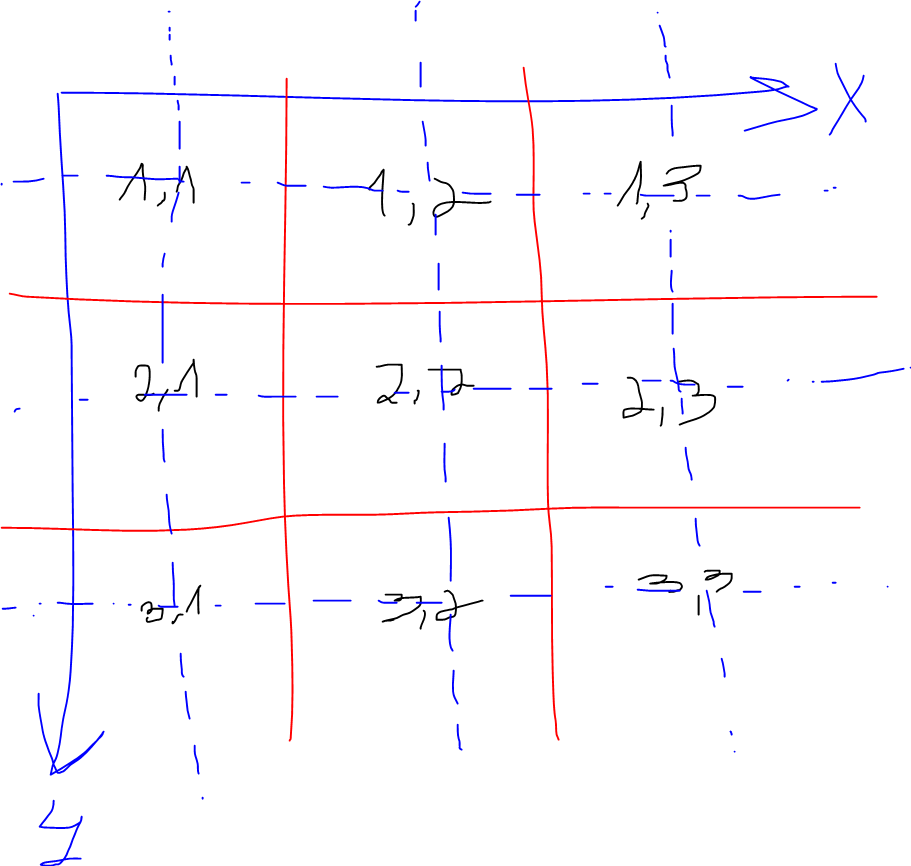 X
1,1 1,2 1,3
2,1 2,2 2,3
3,1 3,2 3,3
y